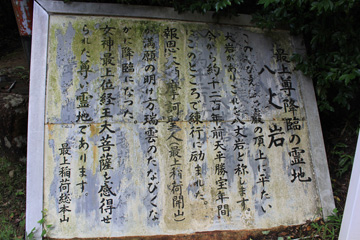 最上尊降臨の霊地
八丈岩
この
大岩があり、これを八丈岩と称します。
今から約千二百年前天平勝宝年間
報恩大師
このところで練行に励まれた
が満願の明け方瑞雲のたなびくな
か降臨になった
女神最上位経王大菩薩を感得せ
られた尊い霊地であります
最上稲荷総本山